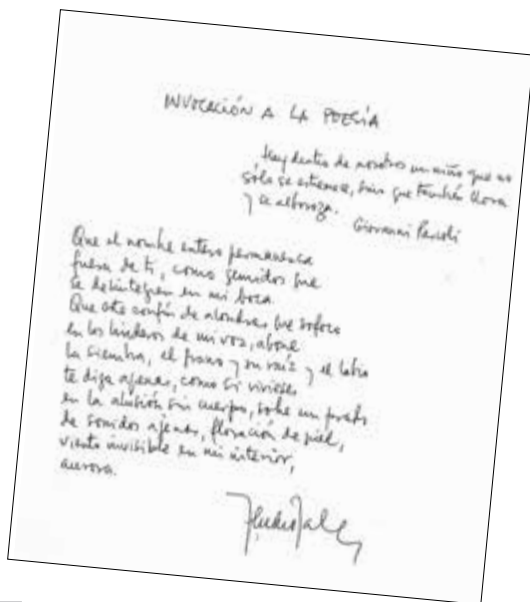 INVOCACIÓN A LA POESÍA
Hay dentro de nosotros un niño que no
sólo se estremece, sino que también llora
y se alboroza.
Giovanni Pascoli
Que el nombre entero permanezca
fuera de ti, como gemidos que
se desintegren en mi boca.
Que este confín de alondras que sofoco
en los linderos de mi voz, abone
la siembra, el fruto y su raíz y el labio
te diga apenas, como si vivieses
en la alusión sin cuerpo, sobre un prado
de sonidos ajenos, floración de piel,
viento invisible en mi interior,
aurora.